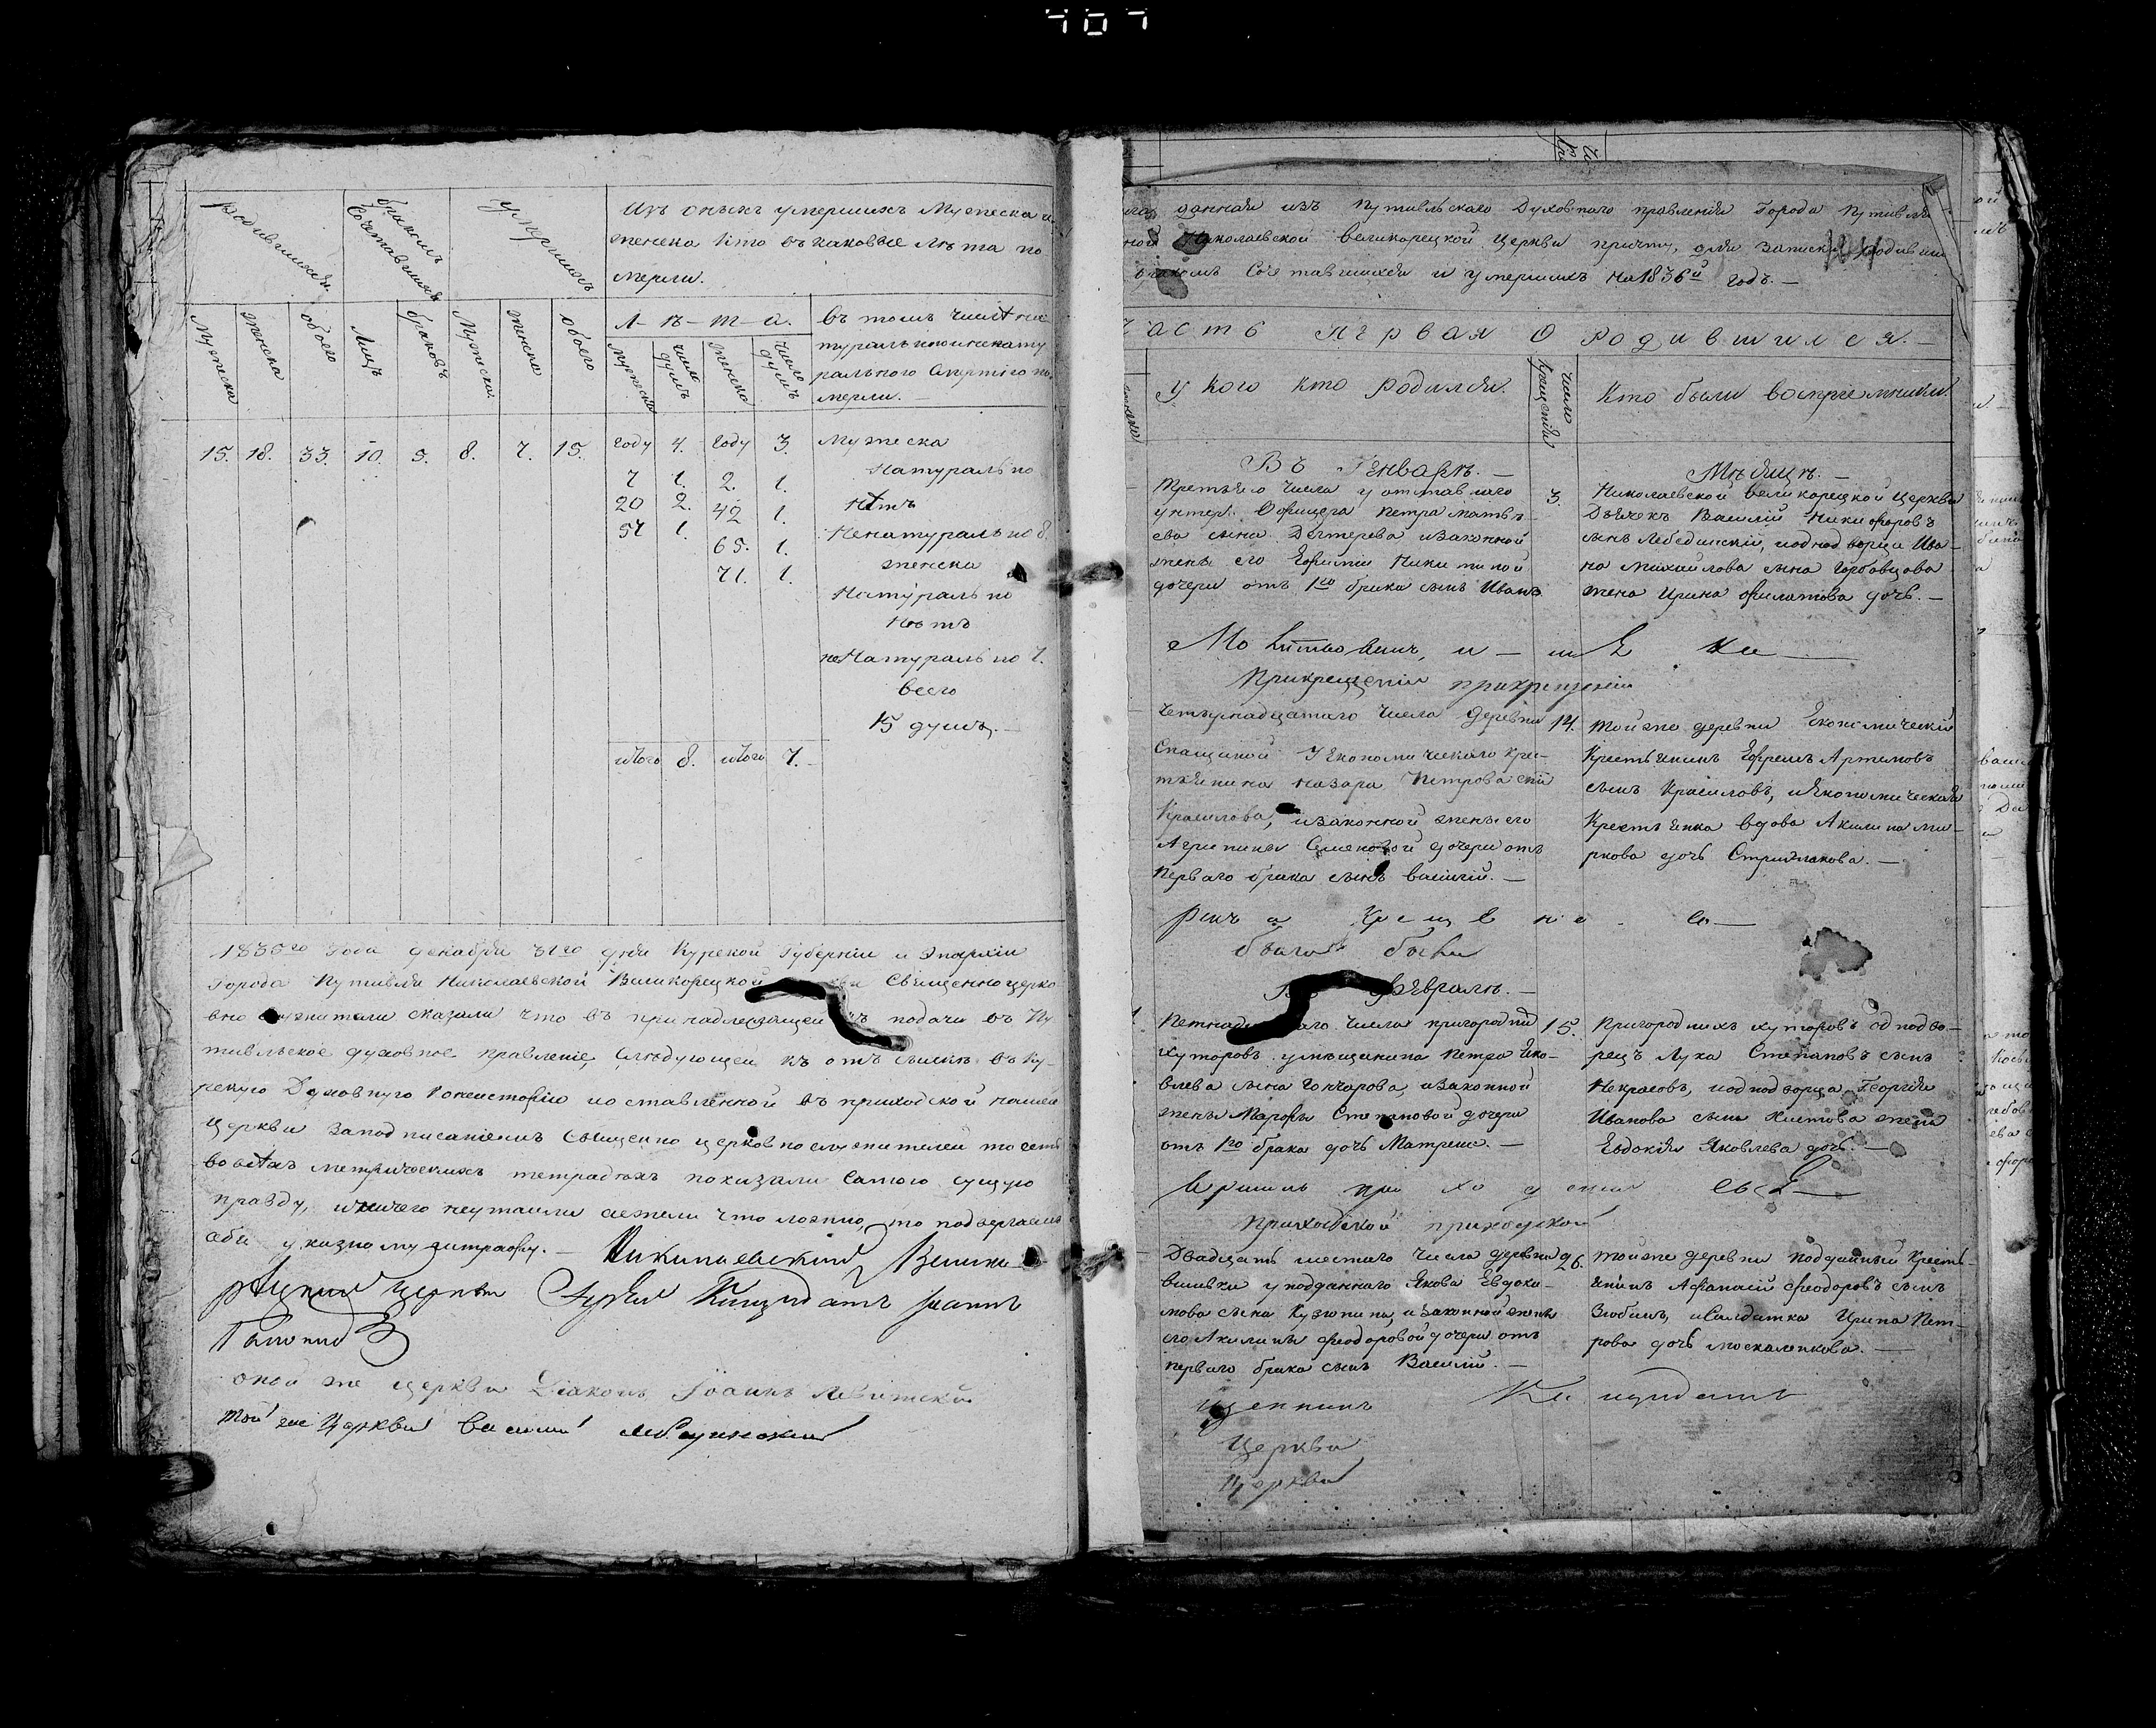 707
родившихся.
бракомъ
Сочетавшихся
умершихъ
Изъ оныхъ умершихъ Мужеска и
женска кто въ каковые лѣта по
мерли.
Мужеска
женска
обоего
Лицъ
браковъ
Мужеска.
женска
обоего
Л-ѣ-т-а.
мужеска
число душъ
женска
число душъ
въ томъ числѣ на
турально и ненату
рального Смертію по
мерли.
15. 18. 33. 10. 5. 8. 7. 15. году 4. году 3. Мужеска
7 1. 2. 1. Натурально
20 2. 42 1. Нѣтъ
57 1. 65. 1. Ненатурально 8.
71. 1. женска
Натурально
Нѣтъ
не Натурально 7.
всего
15 душъ.
итого 8. итого 7.
1835го Года декабря 31го дня Курской Губерніи и Эпархіи
Города Путивля Николаевской Великорецкой Священноцерко
вно служители сказали что въ принадлежащей къ подачи въ Пу
тивльское духовное правленіе, Слѣдующей къ отсылкѣ въ Ку-
рскую Духовную Консисторію и оставленной въ приходской нашей
церкви за подписаніемъ Священно церковно служителей то есть
во всѣхъ метрическихъ тетрадяхъ показали Самою сущую
правду, и ничего неутаили а ежели что ложно, то подвергаемъ
себя указному штрафу. — Николаевской Велико
рецкой церкви Іоаннъ
оной же церкви Діаконъ Іоаннъ Левитскій
Той же Церкви Василій Лебединскій
данная изъ Путивльскаго Духовнаго правленія Города Путивля
ной Николаевской великорецкой церкви причту, для записки родивши
бракомъ Сочетавшихся и умершихъ на 1836й годъ. —
часть первая О Родившихся. —
У кого кто родился.
число крещенія
Кто были воспріемники.
Въ Генварѣ. — Мѣсяцѣ. —
Третьяго числа у отставнаго
унтеръ Офицера Петра Матвѣ-
ева сына Дехтерева и законной
жены его Ефиміи Никитиной
дочери отъ 1го брака сынъ Иванъ
3.
Николаевской великорецкой церкви
Дьячекъ Василій Никифоровъ
сынъ Лебединскій, и однодворца Ива-
на Михайлова сына Горбовцова
жена Ирина Филатова дочь. —
Молитвовалъ, и —
При крещеніи при крещеніи
Четырнадцатаго числа деревни
Спащиной У Економическаго кре-
стьянина Назара Петрова сына
Красилова, и законной жены его
Агрипины Семеновой дочери отъ
перваго брака сынъ Василій. —
14.
Той же деревни Економическій
Крестьянинъ Ефремъ Артемовъ
сынъ Красиловъ, и Економическая
Крестьянка вдова Акилина Ма-
ркова дочь Стрижакова. —
былъ былъ
Въ Февралѣ. —
числа пригородныхъ
хуторовъ у мѣщанина Петра Яко-
влева сына Гончарова, и законной
жены Марфы Степановой дочери
отъ 1го брака дочь Матрена. —
15.
Пригородныхъ хуторовъ однодво-
рецъ Лука Степановъ сынъ
Некрасовъ, и однодворца Георгія
Иванова сына Жена
Евдокія Яковлева дочь. —
приходской приходской
Двадцать шестаго числа деревни
у подданнаго Якова Евдоки-
мова сына Кузюпина, и законной жены
его Акилины Феодоровой дочери отъ
перваго брака сынъ Василій. —
26.
Той же деревни подданный Кресть-
янинъ Афанасій Феодоровъ сынъ
Зюбинъ, и Солдатка Ирина Пет-
рова дочь Москаленкова. —
Кандидатъ
Церкви
Церкви